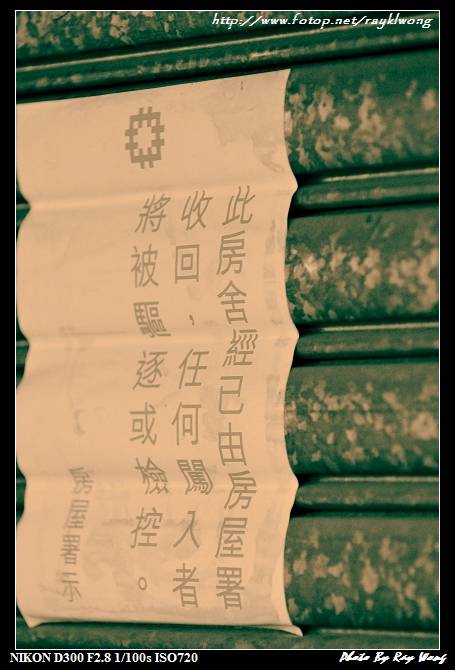 http://www.fotop.net/rayklwong
此房舍經已由房屋署
收回，任何闖入者
將被驅逐或檢控。
房屋署示
NIKON D300 F2.8 1/100s ISO720
Photo By Ray Wong